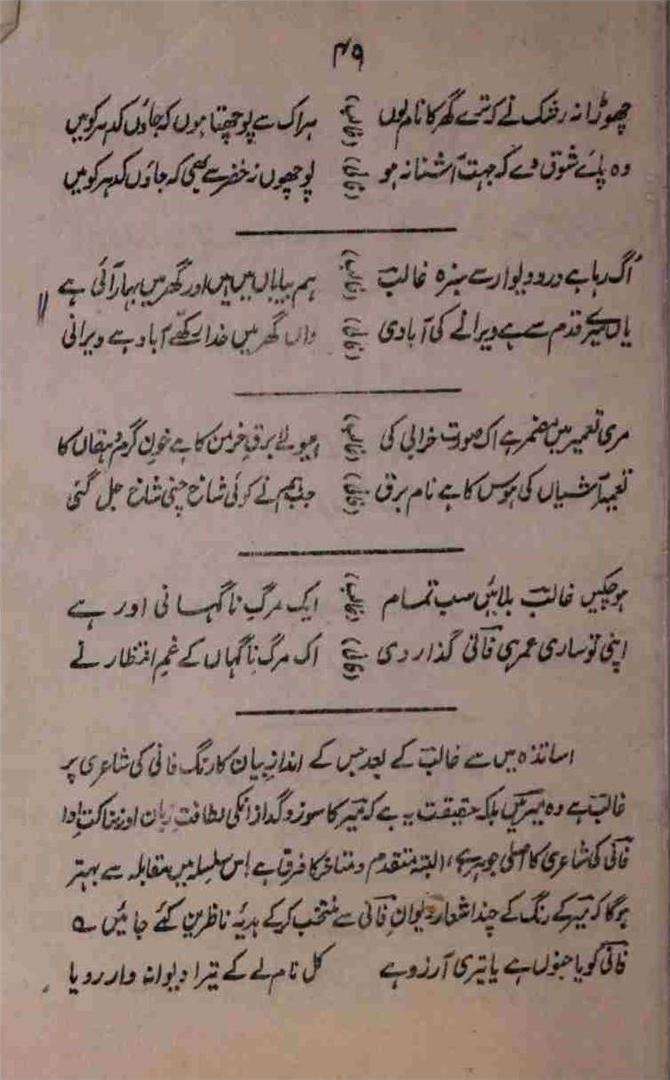 ۴۹
چھوڑا نہ رشک نے کہ ترے گھر کا نام لوں (غالب) ہر اک سے پوچھتا ہوں کہ جاؤں کدھر کو میں
وہ پائے شوق دے کہ جہت آشنا نہ ہو (فانی) پوچھوں نہ خضر سے بھی کہ جاؤں کدھر کو میں
اُگ رہا ہے در و دیوار سے سبزہ غالبؔ (غالب) ہم بیاباں میں ہیں اور گھر میں بہار آئی ہے
یاں میرے قدم سے ہے ویرانے کی آبادی (فانی) واں گھر میں خدا رکھے آباد ہے ویرانی
مری تعمیر میں مضمر ہے اک صورت خرابی کی (غالب) ہیولےٰ برقِ خرمن کا ہے خونِ گرم دہقاں کا
تعمیرِ آشیاں کی ہوس کا ہے نام برق (فانی) جب ہم نے کوئی شاخ چنی شاخ جل گئی
ہو چکیں غالبؔ بلائیں سب تمام (غالب) ایک مرگِ ناگہانی اور ہے
اپنی تو ساری عمر ہی فانیؔ گذار دی (فانی) اک مرگِ ناگہاں کے غمِ انتظار نے
اساتذہ میں سے غالبؔ کے بعد جس کے اندازِ بیان کا رنگ فانی کی شاعری پر
غالبؔ ہے وہ میرؔ ہیں بلکہ حقیقت یہ ہے کہ میرؔ کا سوز و گداز انکی لطافتِ زبان اور نزاکتِ ادا
فانیؔ کی شاعری کا اصلی جوہر ہے، البتہ متقدم و متاخر کا فرق ہے اِس سلسلہ میں مقابلہ سے بہتر
ہوگا کہ میرؔ کے رنگ کے چند اشعار دیوانِ فانیؔ سے منتخب کرکے ہدیۂ ناظرین کئے جائیں ؎
فانیؔ کو یا جنوں ہے یا تیری آرزو ہے کل نام لے کے تیرا دیوانہ وار رویا